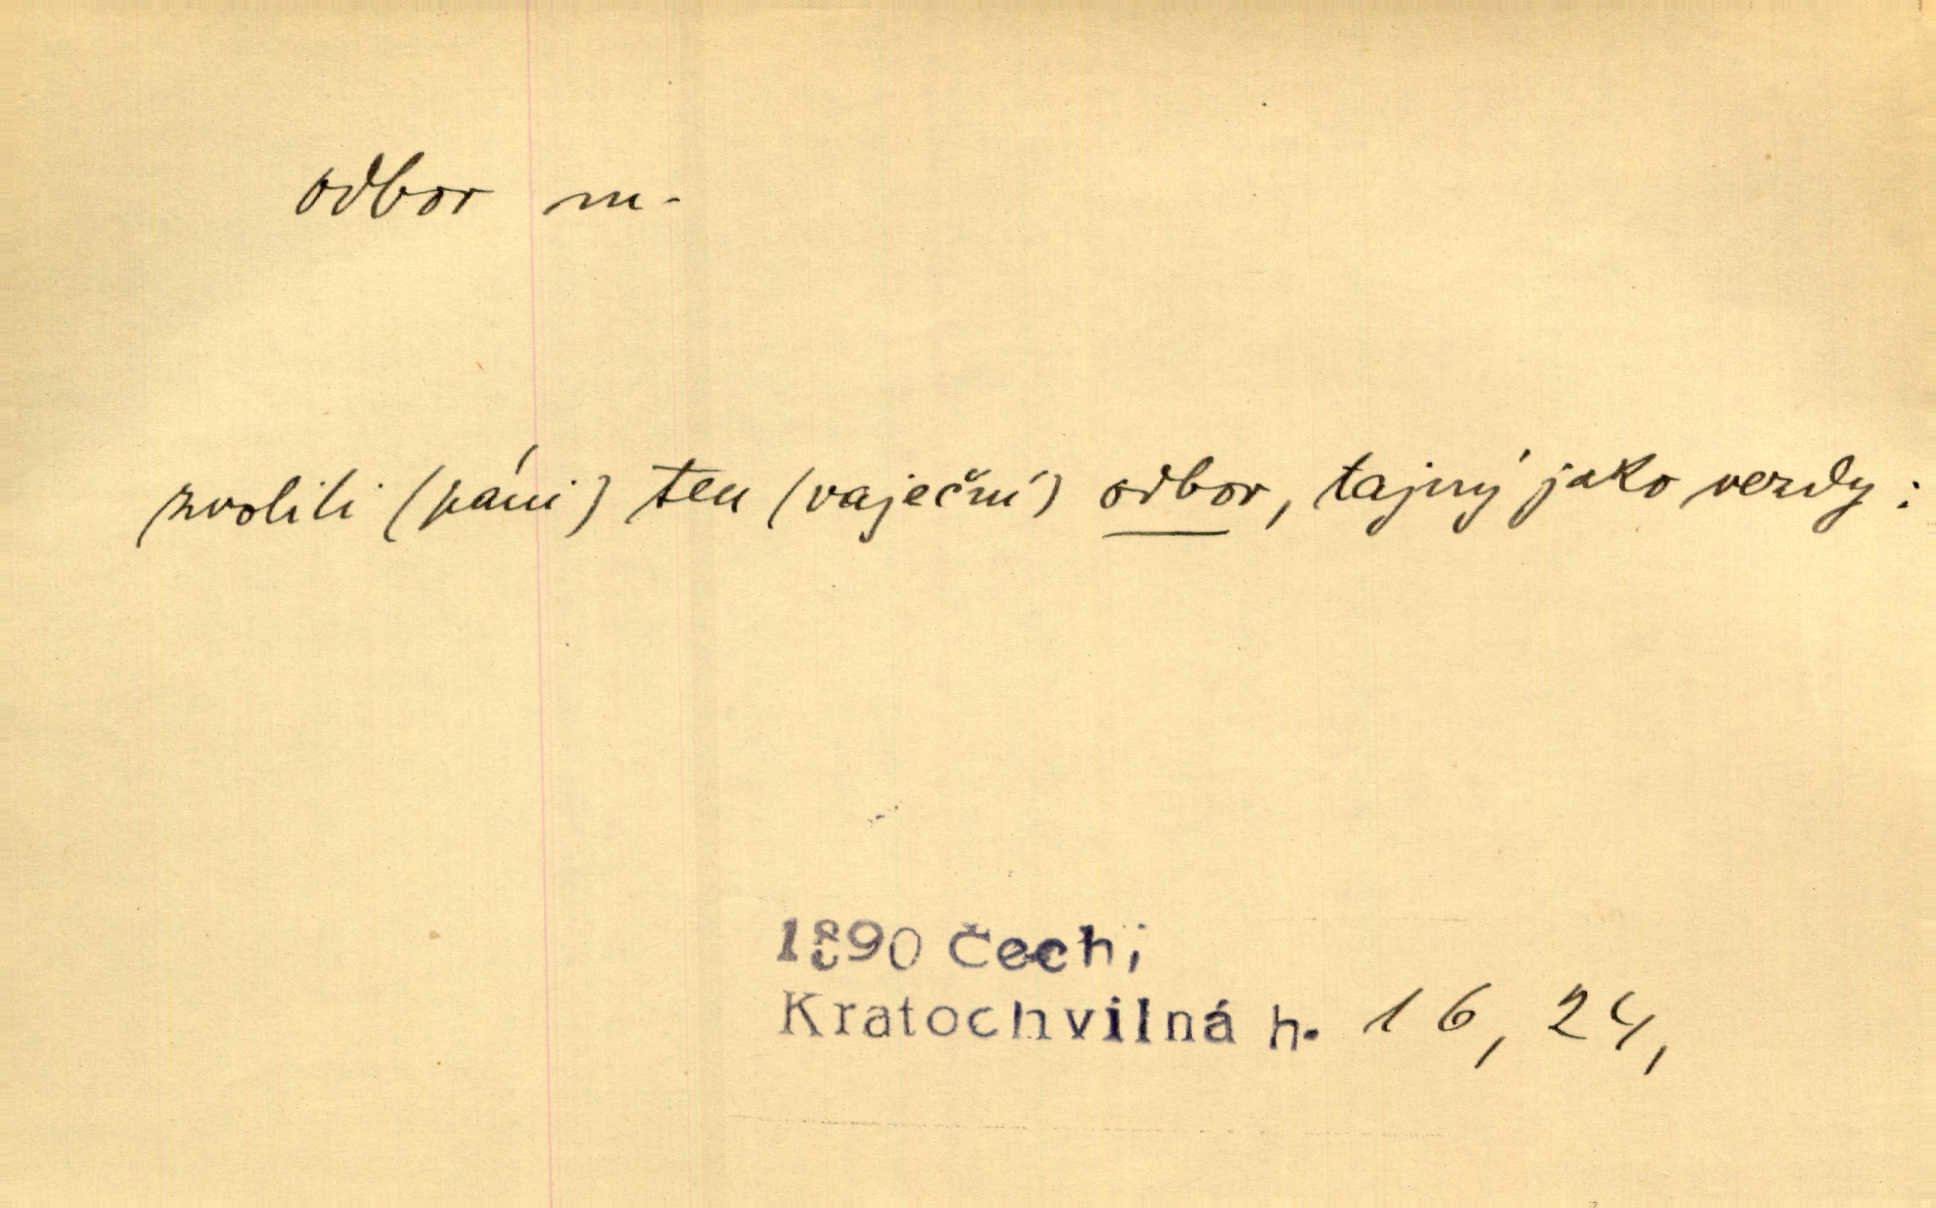 odbor m.
zvolili (páni) ten (vaječní) odbor, tajný jako vezdy:
1890 Čech,
Kratochvilná h. 16, 24,